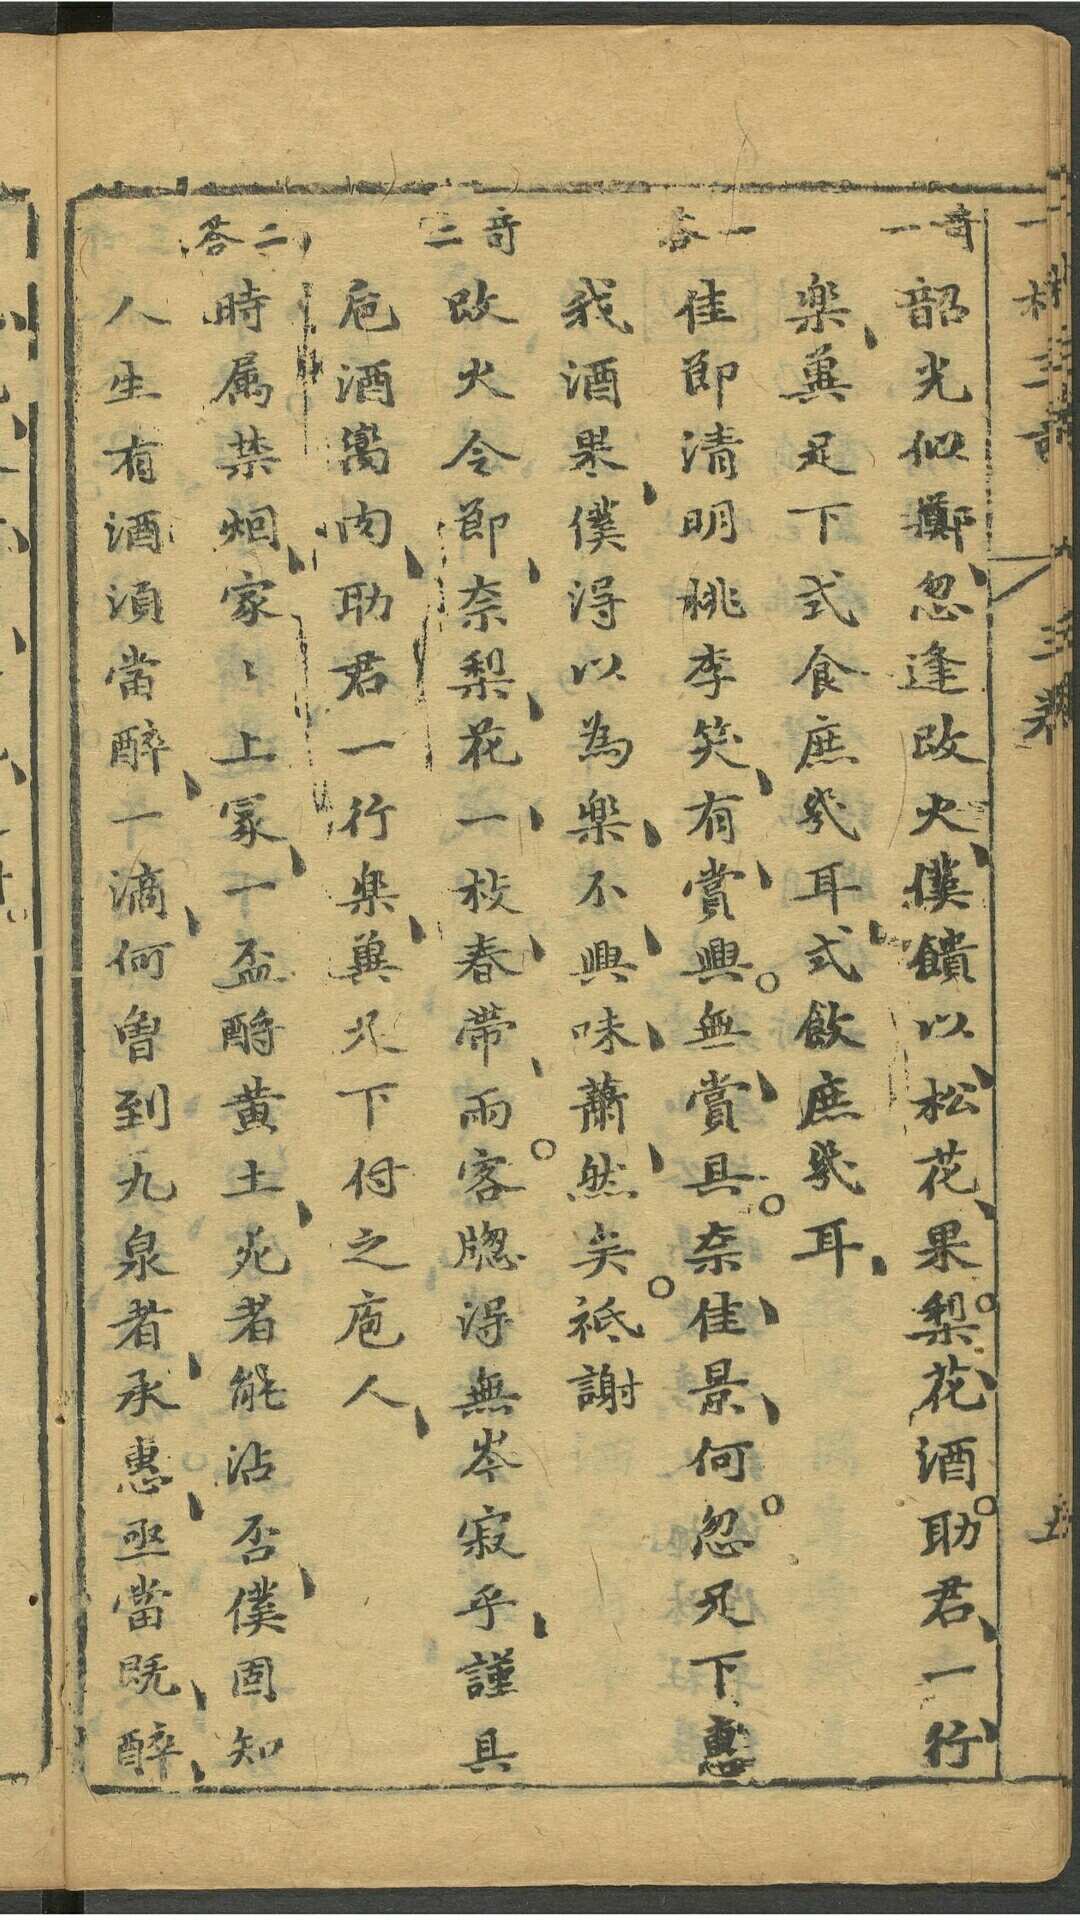 一寄
韶光似擲忽逢改火僕饋以松花果梨花酒助君一行
楽冀足下式食庶㡬耳式飲庶㡬耳
一答
佳節清明桃李笑有賞興無賞具奈佳景何忽足下惠
我酒果僕得以為楽不興味蕭然矣祗謝
二寄
改火令節奈梨花一枝春帶雨客牎得無岑寂乎謹具
卮酒脔肉助君一行楽冀足下付之庖人
二答
時属禁烟家〻上冢一盃酹黄土死者能沾否僕固知
人生有酒須當醉一滴何曽到九泉者承惠亟當既醉